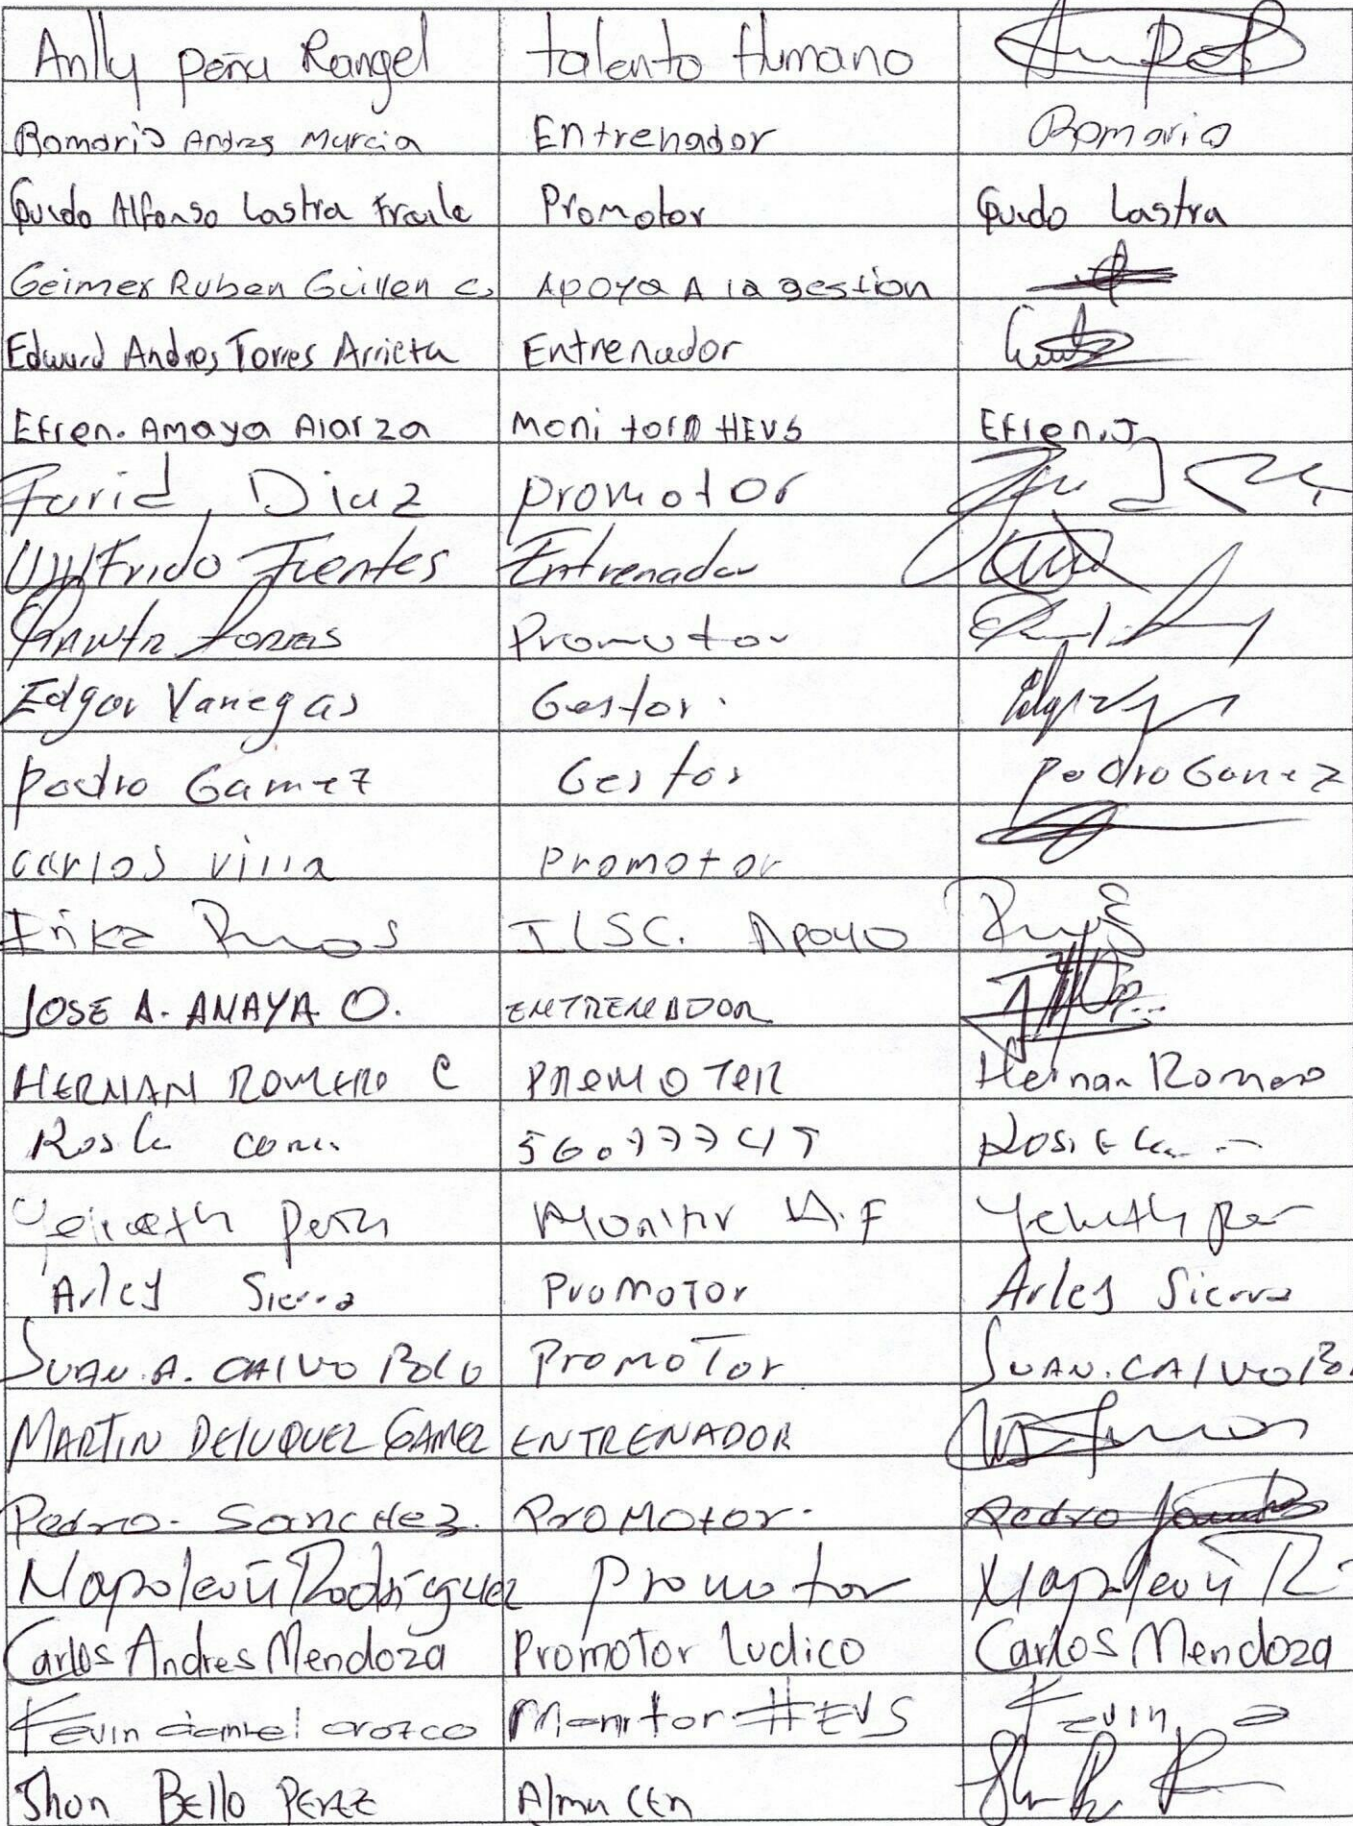 Anlly peña Rangel talento Humano
Romario Andres Murcia Entrenador Romario
Guido Alfonso Lastra Fraile Promotor Guido Lastra
Geimer Ruben Guillen C. Apoyo A la gestion
Edward Andres Torres Arrieta Entrenador
Efren. Amaya Alarza Monitor HEVS Efren.J
Farid, Diaz promotor
Wilfrido Fuentes Entrenador
Torres Promotor
Edgar Vanegas Gestor.
Pedro Gamez Gestor Pedro Gamez
carlos villa promotor
Apoyo
JOSE A. ANAYA O. ENTRENADOR
HERNAN ROMERO C PROMOTER Hernan Romero
Monitor A.F
Arley Sierra Promotor Arley Sierra
JUAN.A. CALVO POLO PromoTor JUAN.CALVO
MARTIN DELUQUEZ GAMEZ ENTRENADOR
Pedro. SancHez. ProMotor. Pedro
Napoleon Rodriguez promotor Napoleon R
Carlos Andres Mendoza Promotor Ludico Carlos Mendoza
Kevin daniel orozco Monitor HEVS Kevin
Jhon Bello Perez Almacen